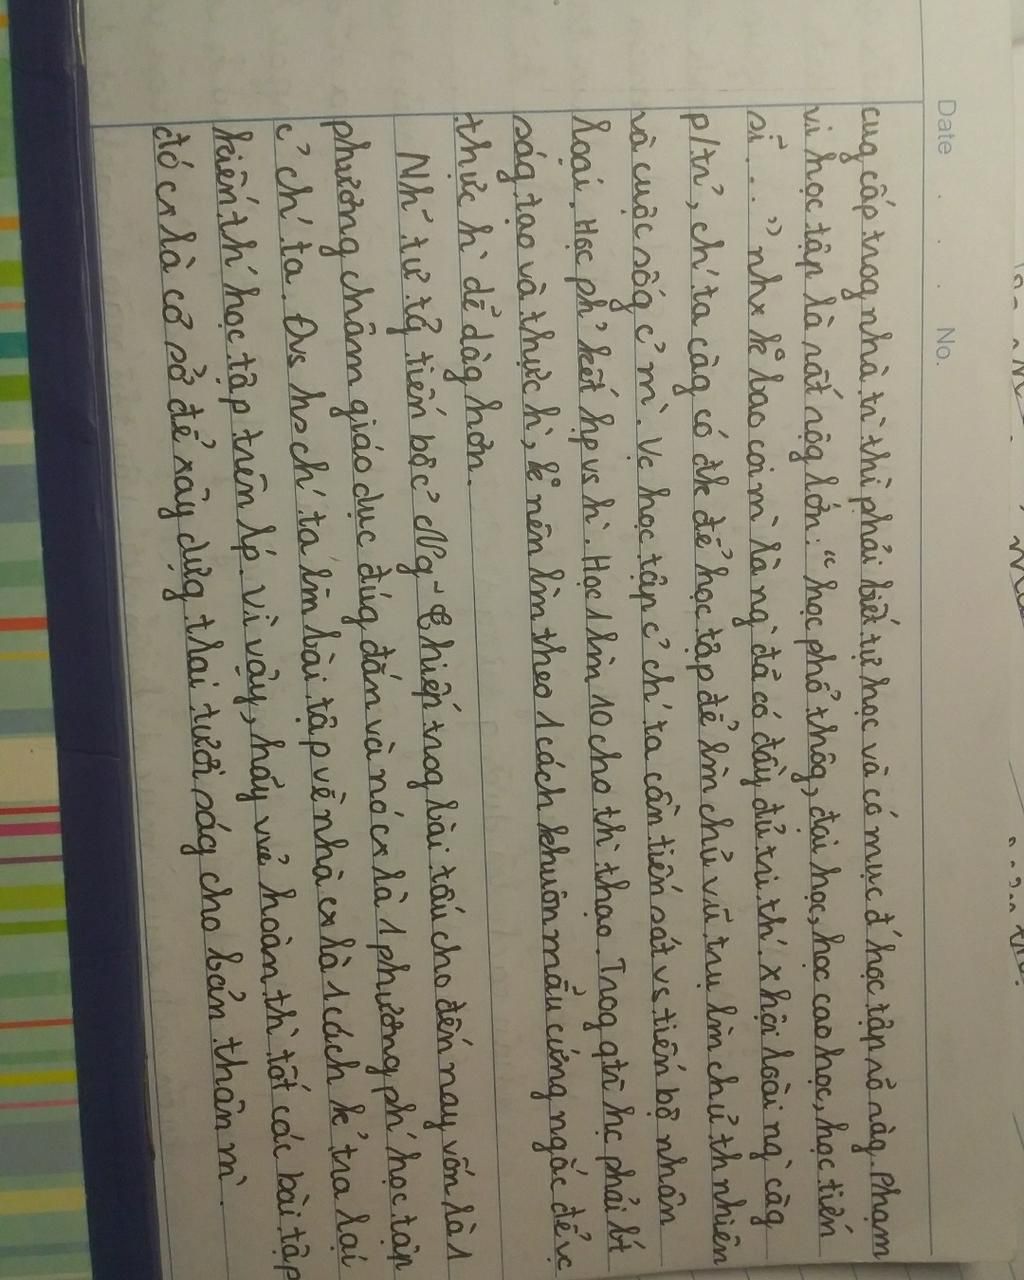 Date . . . No.
cug cấp trog nhà trì thì phải biết tự học và có mục đ́ học tập rõ ràg. Phạm
vi học tập là rất rộg lớn: "học phổ thôg, đại học, học cao học, học tiến
sĩ..." nhx k° bao coi m̀ là ng̀ đã có đầy đủ tri th́. xhội loài ng̀ càg
p/tr̉, ch́ ta càg có đk để học tập để l̀m chủ vũ trụ l̀m chủ th nhiên
và cuộc sốg c̉ m̀. Vc học tập c̉ ch́ ta cần tiến sát vs tiến bộ nhân
loại. Học ph̉ kết hp vs h̀. Học 1 h̀m 10 cho th̀ thạo. Trog qtr̀ hc phải bt
ság tạo và thực h̀, k° nên l̀m theo 1 cách khuôn mẫu cứng ngắc để vc
thực h̀ dễ dàg hơn.
Nh́ tư tg̉ tiến bộ c̉ Ng~ Thiếp trog bài tấu cho đến nay vốn là 1
phương châm giáo dục đúg đắn và nó cx là 1 phương ph́ học tập
c̉ ch́ ta. Đvs hs ch́ ta l̀m bài tập về nhà cx là 1 cách k̉ tra lại
kiến th́ học tập trên lp. Vì vậy, hãy vvẻ hoàn th̀ tốt các bài tập
đó cx là cơ sở để xây dựg tlai tươi ság cho bản thân m̀.